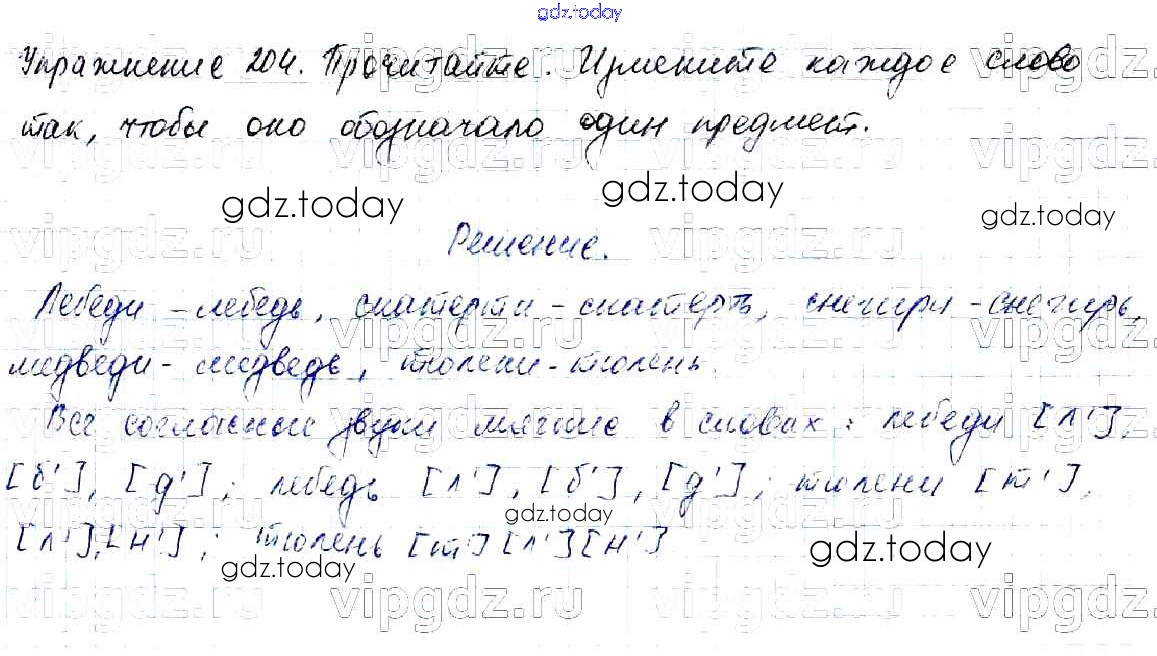 gdz.today
Упражнение 204. Прочитайте. Измените каждое слово
так, чтобы оно обозначало один предмет.
vipgdz.ru vipgdz.ru vipgdz.ru vipgdz.ru
gdz.today gdz.today gdz.today
Решение.
Лебеди - лебедь, скатерти - скатерть, снегири - снегирь,
медведи - медведь, тюлени - тюлень.
Все согласные звуки мягкие в словах: лебеди [л'],
[б'], [д']; лебедь [л'], [б'], [д']; тюлени [т'],
gdz.today
[л'], [н']; тюлень [т'] [л'] [н']
gdz.today gdz.today
vipgdz.ru vipgdz.ru vipgdz.ru